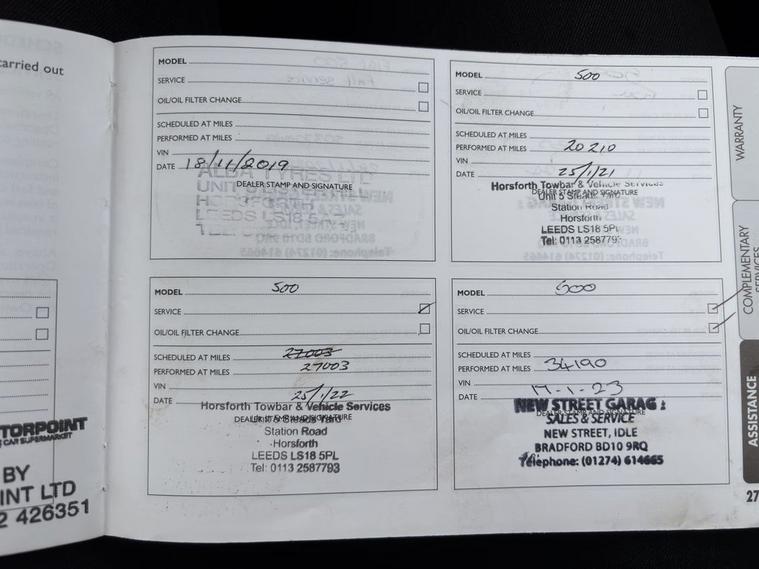 carried out
TORPOINT
CAR SUPERMARKET
BY
INT LTD
2 426351
MODEL
SERVICE
OIL/OIL FILTER CHANGE
SCHEDULED AT MILES
PERFORMED AT MILES
VIN
DATE 18/11/2019
DEALER STAMP AND SIGNATURE
ALBA TYRES LTD
UNIT
HORSFORTH
LEEDS LS18
MODEL 500
SERVICE
OIL/OIL FILTER CHANGE
SCHEDULED AT MILES
PERFORMED AT MILES 20210
VIN
DATE 25/1/21
Horsforth Towbar & Vehicle Services
DEALER STAMP AND SIGNATURE
Unit 5
Station Road
Horsforth
LEEDS LS18 5PL
Tel: 0113 2587793
MODEL 500
SERVICE
OIL/OIL FILTER CHANGE
SCHEDULED AT MILES 27003
PERFORMED AT MILES 27003
VIN
DATE 25/1/22
Horsforth Towbar & Vehicle Services
DEALER STAMP AND SIGNATURE
Station Road
Horsforth
LEEDS LS18 5PL
Tel: 0113 2587793
MODEL 500
SERVICE
OIL/OIL FILTER CHANGE
SCHEDULED AT MILES
PERFORMED AT MILES 34190
VIN
DATE 17-1-23
NEW STREET GARAG
DEALER STAMP AND SIGNATURE
SALES & SERVICE
NEW STREET, IDLE
BRADFORD BD10 9RQ
Telephone: (01274) 614665
WARRANTY
COMPLEMENTARY
SERVICES
ASSISTANCE
27